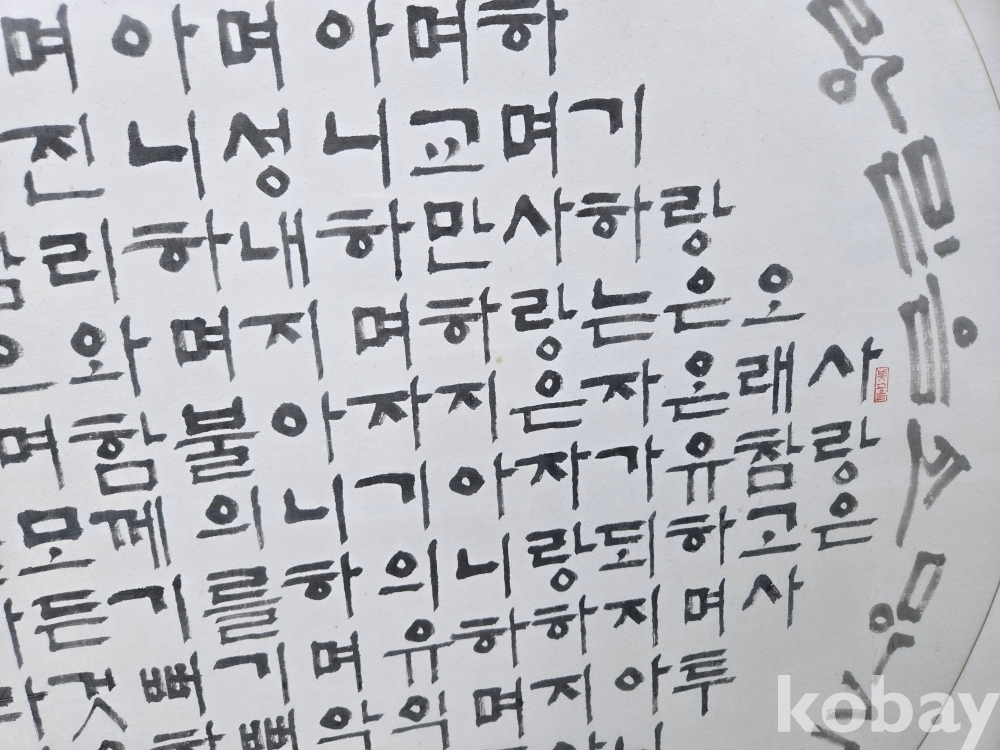 랑믿음소망
사랑은
오래참고사
랑은온유하며투
기하는자가되지아니
하며사랑은자랑하지
며교만하지아니하며
아니하며자기의유익
며성내지아니하며악
아니하며불의를기뻐
며진리와함께기뻐하
며모든것
kobay